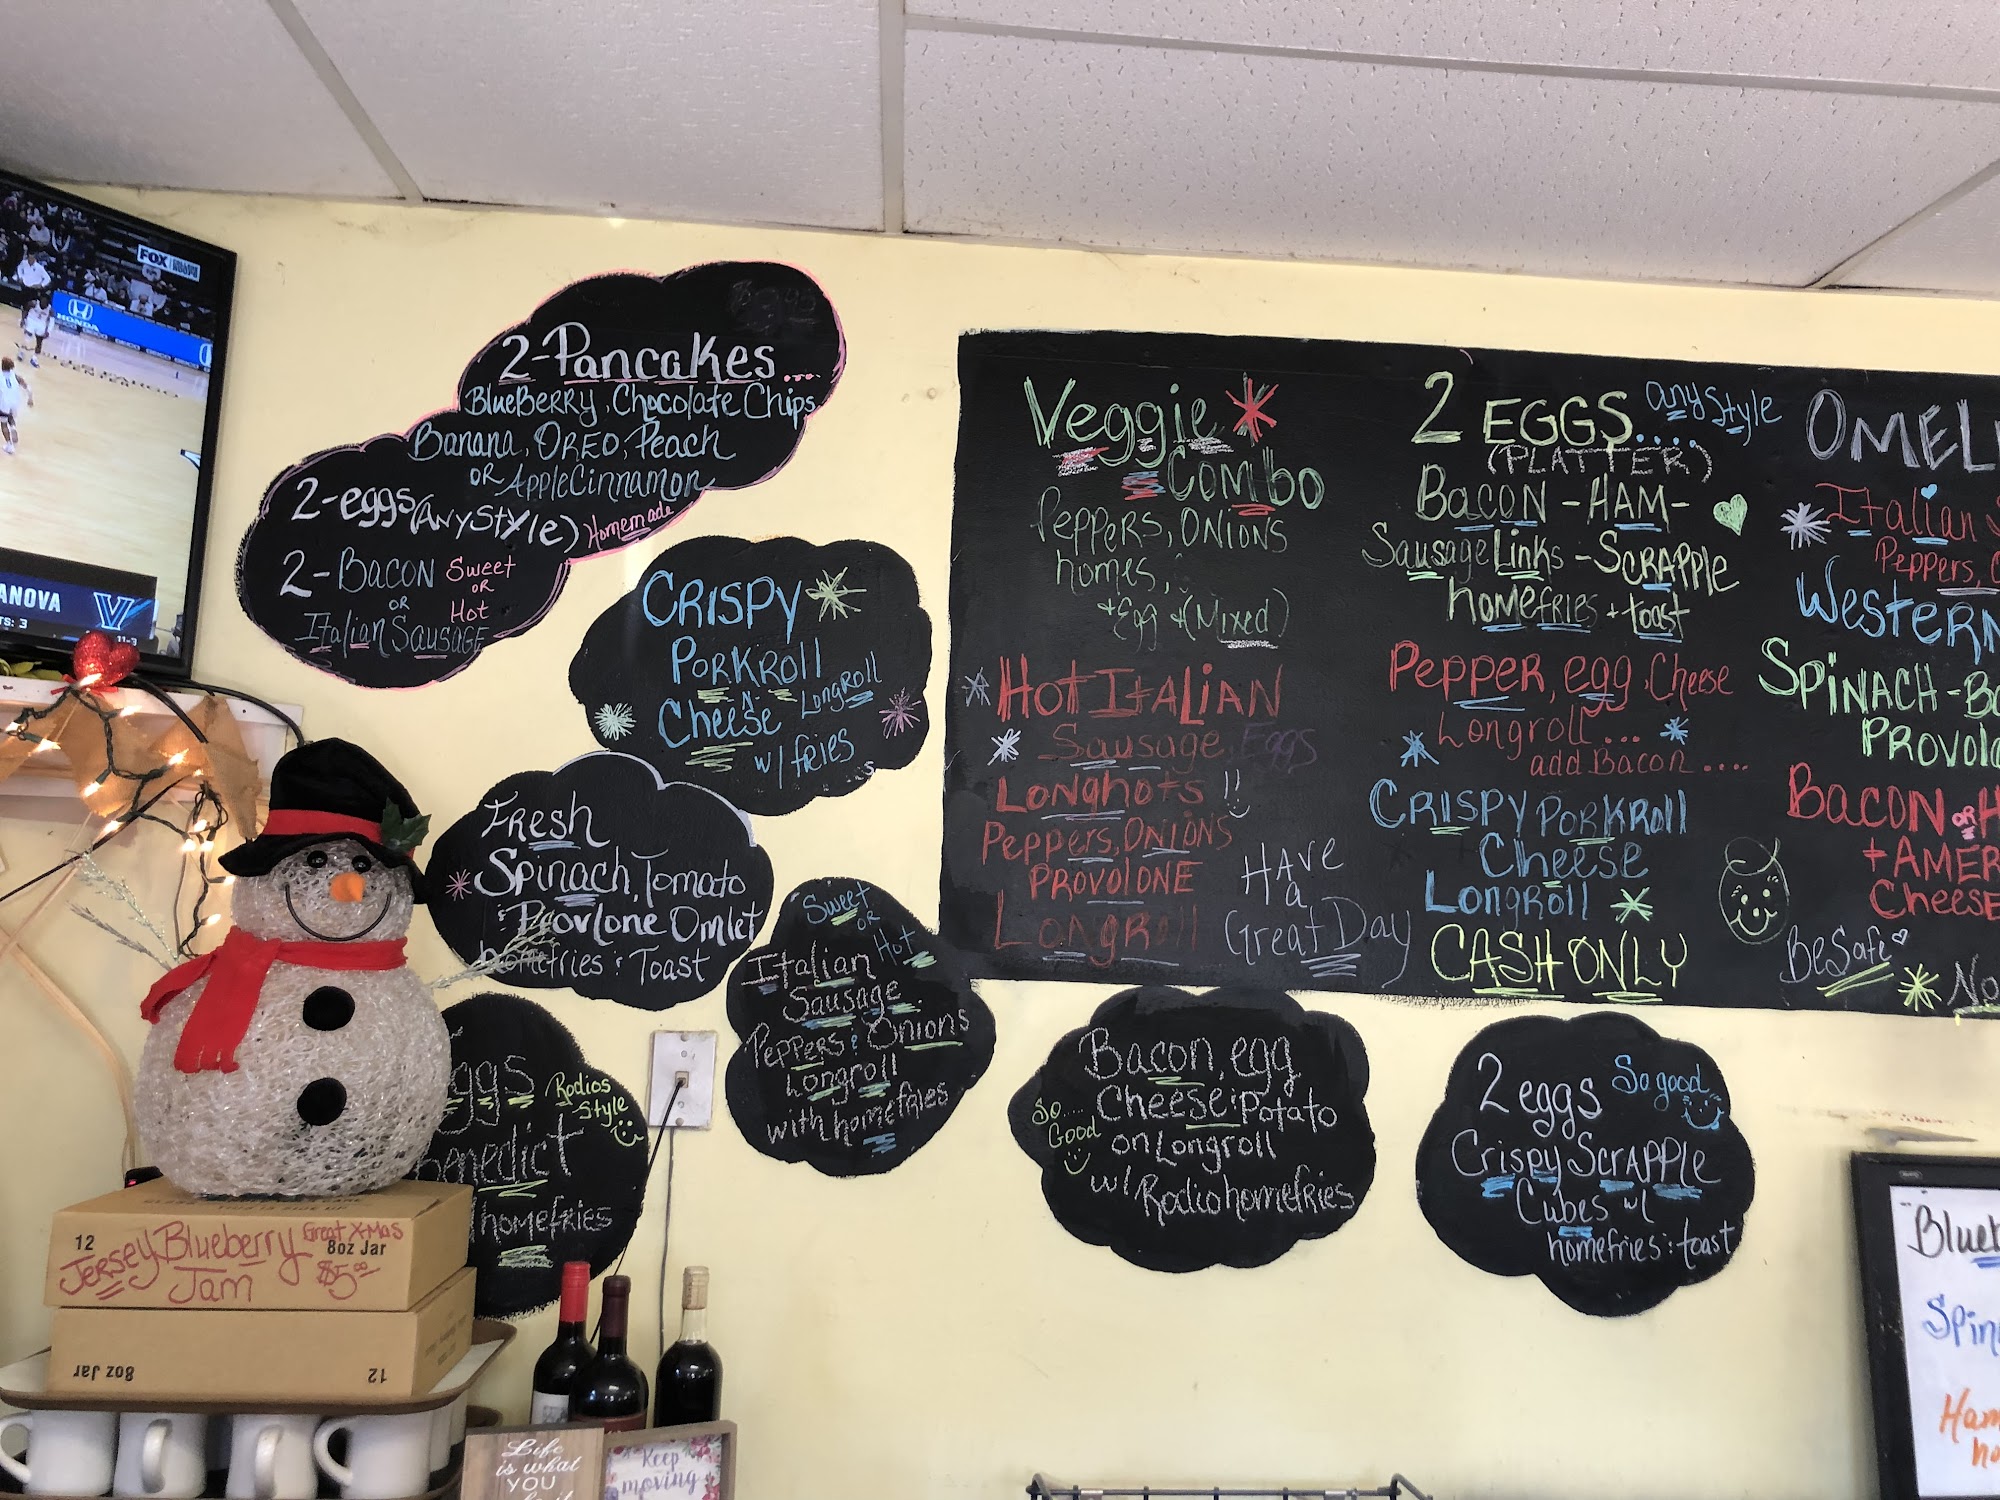 FOX
HONDA
GEICO
ANOVA
TS: 3
11-3
2-Pancakes....
BlueBerry, Chocolate Chips
Banana, Oreo, Peach
or Apple Cinnamon
2-eggs (Any Style) Homemade
2-Bacon Sweet
or or
Italian Sausage Hot
Crispy
Porkroll
N
Cheese Longroll
w/ fries
Fresh
Spinach, Tomato
& Provlone Omlet
homefries & Toast
Sweet
or
Hot
Italian
Sausage
Peppers & Onions
Longroll
with homefries
ggs Rodios
Style
Benedict
homefries
Bacon, egg
Cheese & Potato
on Longroll
w/ Rodio homefries
So....
Good
2 eggs So good
Crispy Scrapple
Cubes w/
homefries & toast
Veggie
Combo
Peppers, Onions
homes,
+ Egg + (Mixed)
Hot Italian
Sausage Eggs
Longhots !!
Peppers, Onions
Provolone
Longroll
Have
a
Great Day
2 EGGS.... any style
(PLATTER)
Bacon - Ham -
Sausage Links - Scrapple
homefries + toast
Pepper, egg, Cheese
Longroll...
add Bacon....
Crispy Porkroll
Cheese
Longroll
CASH ONLY
OMEL
Italian S
Peppers, O
Western
Spinach - Ba
Provolo
Bacon or H
+ AMER
Cheese
Be Safe
No
12
8oz Jar
Jersey Blueberry
Jam
Great X-Mas
$5.00
8oz Jar
12
Life
is what
YOU
Keep
moving
Blueb
Spin
Ham
ho